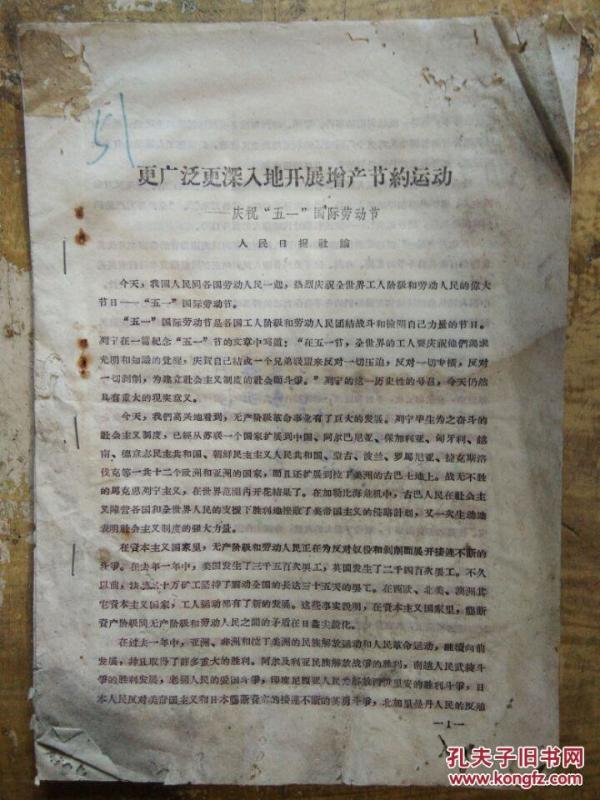 51
更广泛更深入地开展增产节約运动
——庆祝“五一”国际劳动节
人民日报社論
今天，我国人民同各国劳动人民一起，热烈庆祝全世界工人阶级和劳动人民的偉大
节日——“五一”国际劳动节。
“五一”国际劳动节是各国工人阶级和劳动人民团結战斗和检閱自己力量的节日。
列宁在一篇紀念“五一”节的文章中写道：“在五一节，全世界的工人要庆祝他們渴求
光明和知識的觉醒，庆賀自己結成一个兄弟联盟来反对一切压迫，反对一切专横，反对
一切剥削，为建立社会主义制度的社会而斗爭。”列宁的这一历史性的号召，今天仍然
具有重大的现实意义。
今天，我們高兴地看到，无产阶级革命事业有了巨大的发展。列宁毕生为之奋斗的
社会主义制度，已經从苏联一个国家扩展到中国、阿尔巴尼亚、保加利亚、匈牙利、越
南、德意志民主共和国、朝鮮民主主义人民共和国、蒙古、波兰、罗馬尼亚、捷克斯洛
伐克等一共十二个欧洲和亚洲的国家，而且还扩展到拉丁美洲的古巴土地上。战无不胜
的馬克思列宁主义，在世界范围内开花結果了。在加勒比海危机中，古巴人民在社会主
义陣营各国和全世界人民的支援下胜利地挫败了美帝国主义的侵略計划，又一次生动地
表明社会主义制度的强大力量。
在資本主义国家里，无产阶级和劳动人民正在为反对奴役和剥削而展开接連不断的
斗爭。在去年一年中，美国发生了三千五百次罢工，英国发生了二千四百次罢工。不久
以前，法国二十万矿工坚持了震动全国的长达三十五天的罢工。在西欧、北美、澳洲其
它資本主义国家，工人运动都有了新的发展。这些事实說明，在資本主义国家里，壟断
資产阶级同无产阶级和劳动人民之間的矛盾在日益尖銳化。
在过去一年中，亚洲、非洲和拉丁美洲的民族解放运动和人民革命运动，继續向前
发展，并且取得了許多重大的胜利。阿尔及利亚民族解放战爭的胜利，南越人民武装斗
爭的胜利发展，老撾人民的爱国斗爭，印度尼西亚人民光解放西伊里安的胜利斗爭，日
本人民反对美帝国主义和日本壟断資本的接連不断的英勇斗爭，北加里曼丹人民的反殖
—1—
孔夫子旧书网
www.kongfz.com